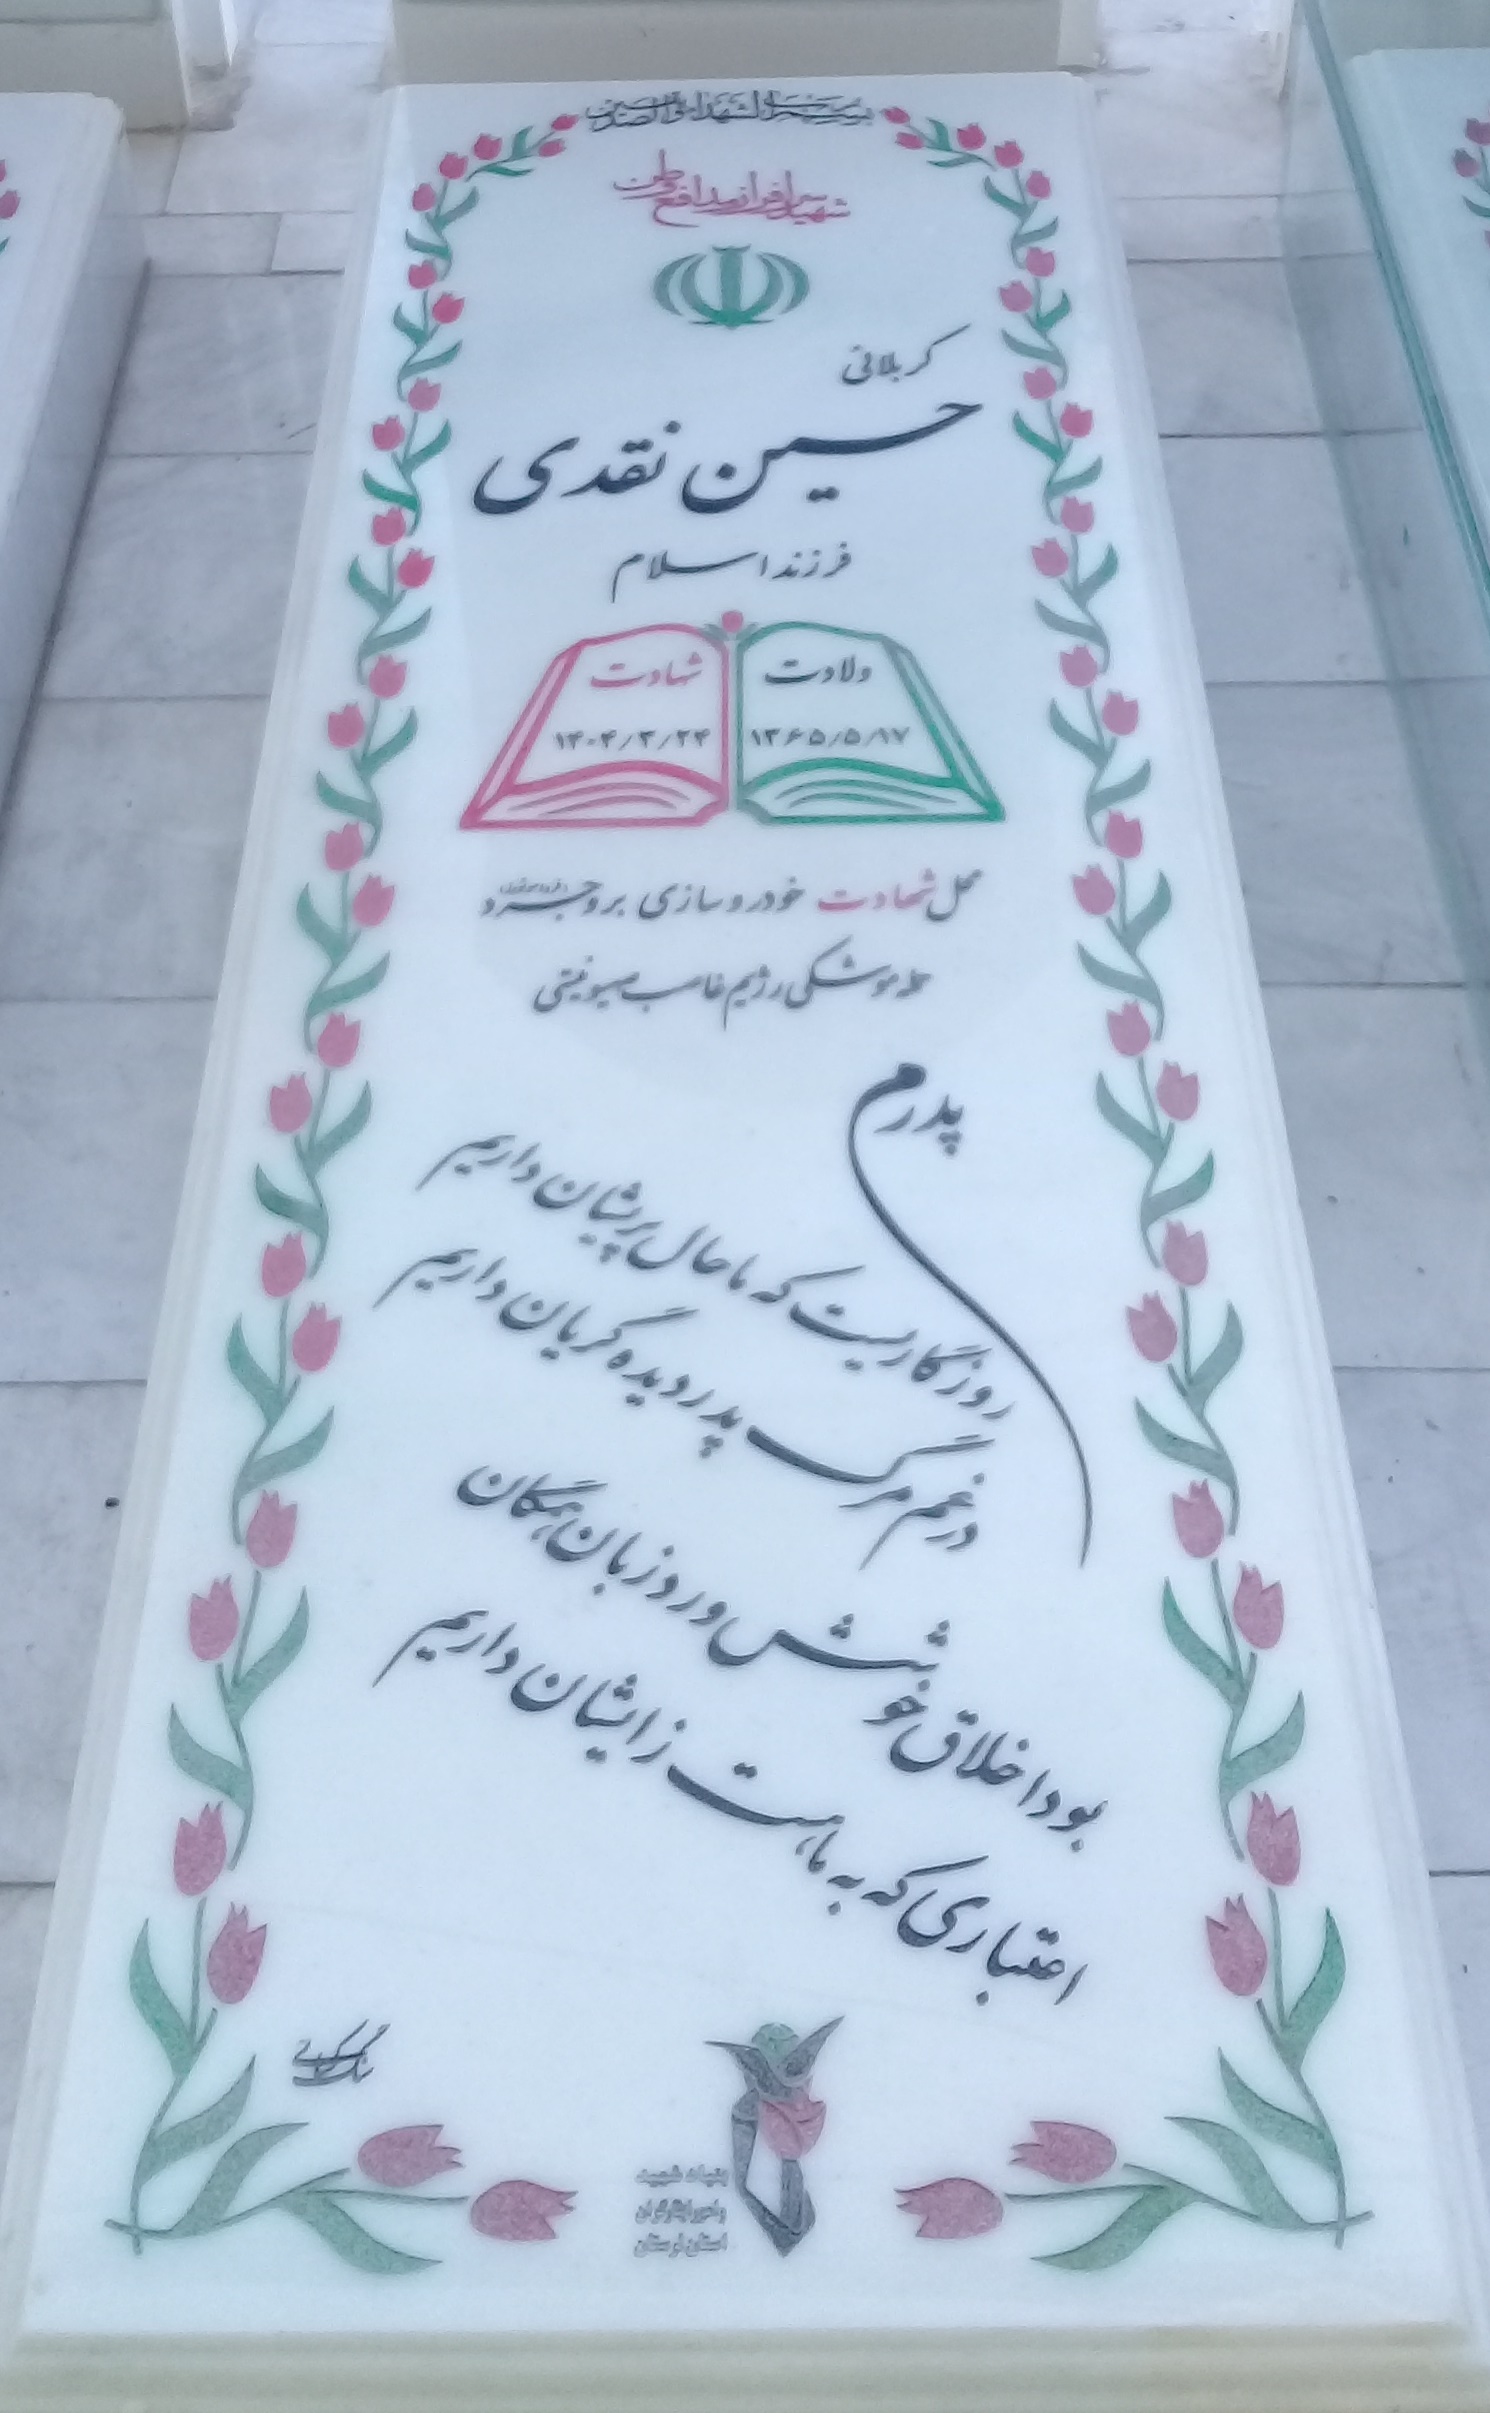 بسم رب الشهداء و الصدیقین
شهید سرافراز مدافع وطن
کربلائی
حسین نقدی
فرزند اسلام
ولادت
۱۳۶۵/۵/۱۷
شهادت
۱۴۰۴/۳/۲۴
محل شهادت خودروسازی بروجرد
حمله موشکی رژیم غاصب صهیونیستی
پدرم
روزگاریست که ما حال پریشان داریم
در غم مرگ پدر دیده گریان داریم
بود اخلاق خوشش ورد زبان همگان
اعتباری که به ما هست ز ایشان داریم
بنیاد شهید
و امور ایثارگران
استان لرستان